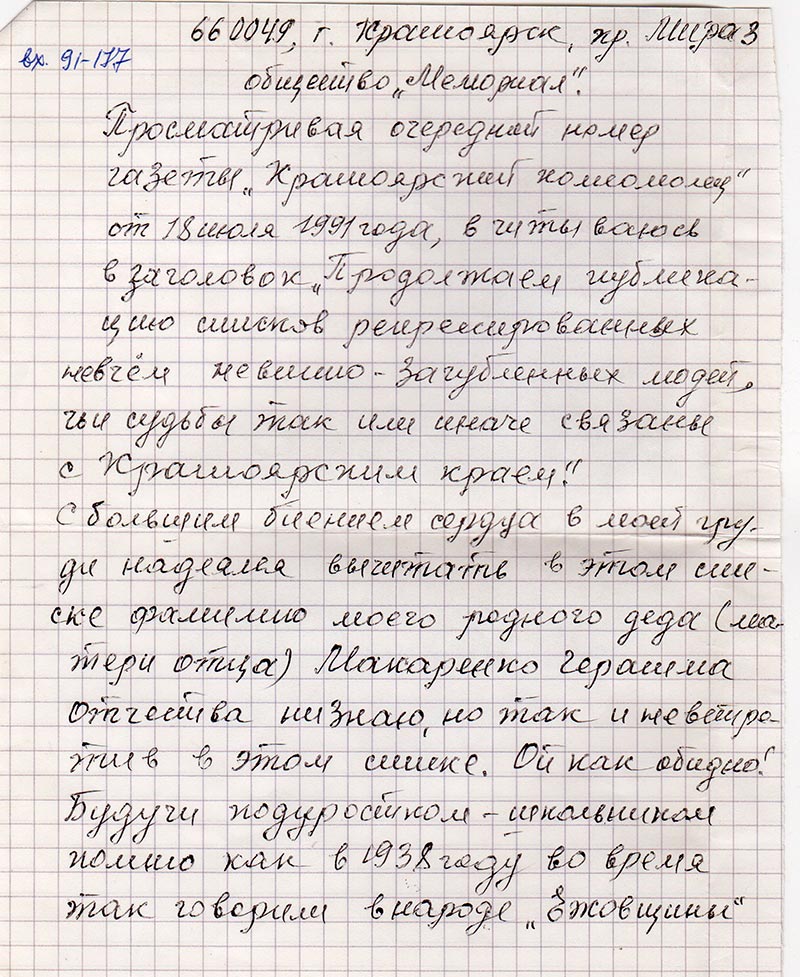 660049, г. Красноярск, пр. Мира 3
вх. 91-177
общество „Мемориал".
Просматривая очередной номер
газеты „Красноярский комсомолец"
от 18 июля 1991 года, вчитываюсь
в заголовок „Продолжаем публика-
цию списков репрессированных
невчём невинно-загубленных людей,
чьи судьбы так или иначе связаны
с Красноярским краем!"
С большим биением сердца в моей гру-
ди надеялся вычитать в этом спи-
ске фамилию моего родного деда (ма-
тери отца) Макаренко Герасима
Отчества низнаю, но так и невстре-
тив в этом списке. Ой как обидно!
Будучи подуростком-школьником
помню как в 1938 году во время
так говорили в народе „Ежовщины"